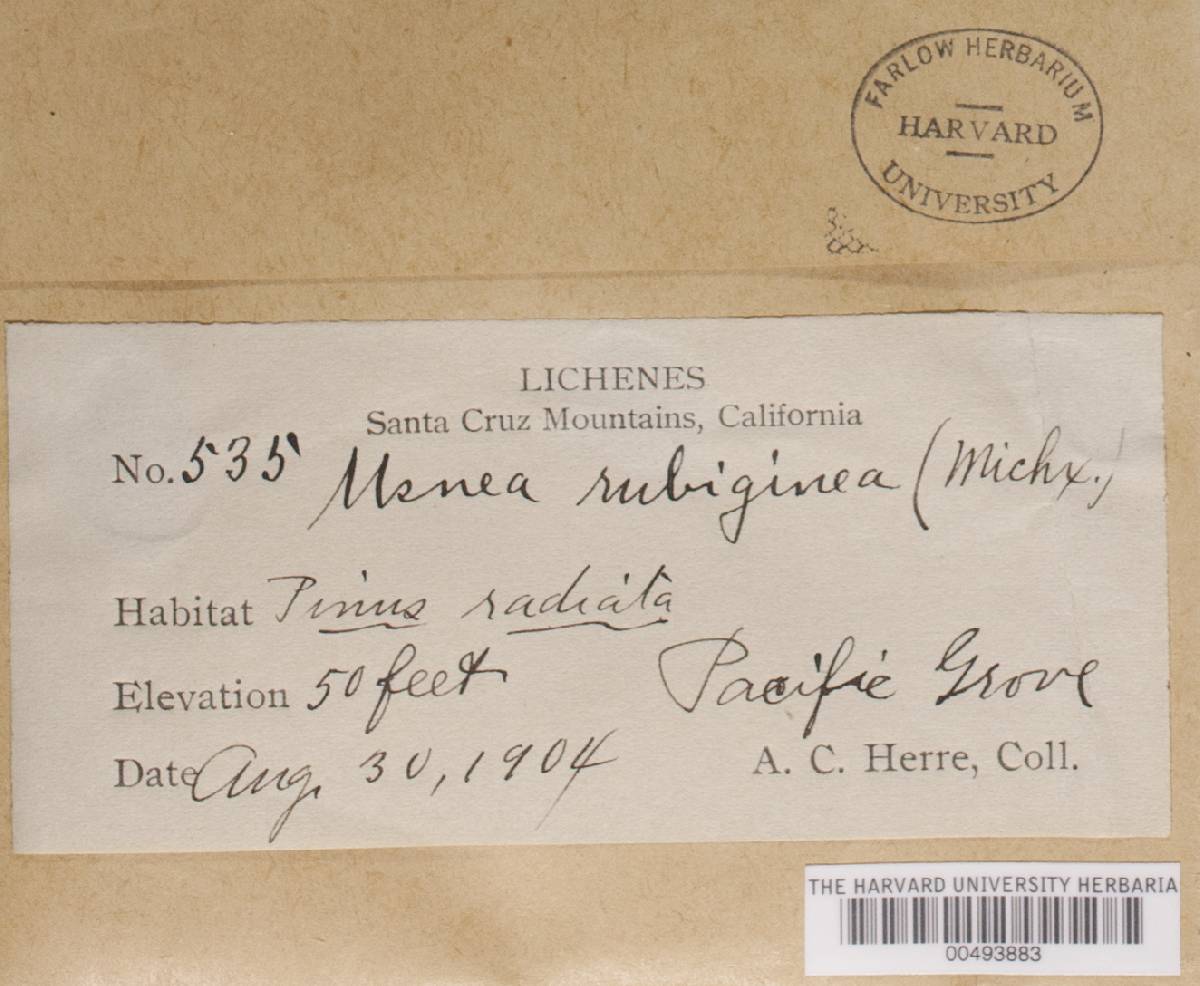 FARLOW HERBARIUM
HARVARD
UNIVERSITY
LICHENES
Santa Cruz Mountains, California
No. 535 Usnea rubiginea (Michx.)
Habitat Pinus radiata
Elevation 50 feet Pacific Grove
Date Aug. 30, 1904 A. C. Herre, Coll.
THE HARVARD UNIVERSITY HERBARIA
00493883